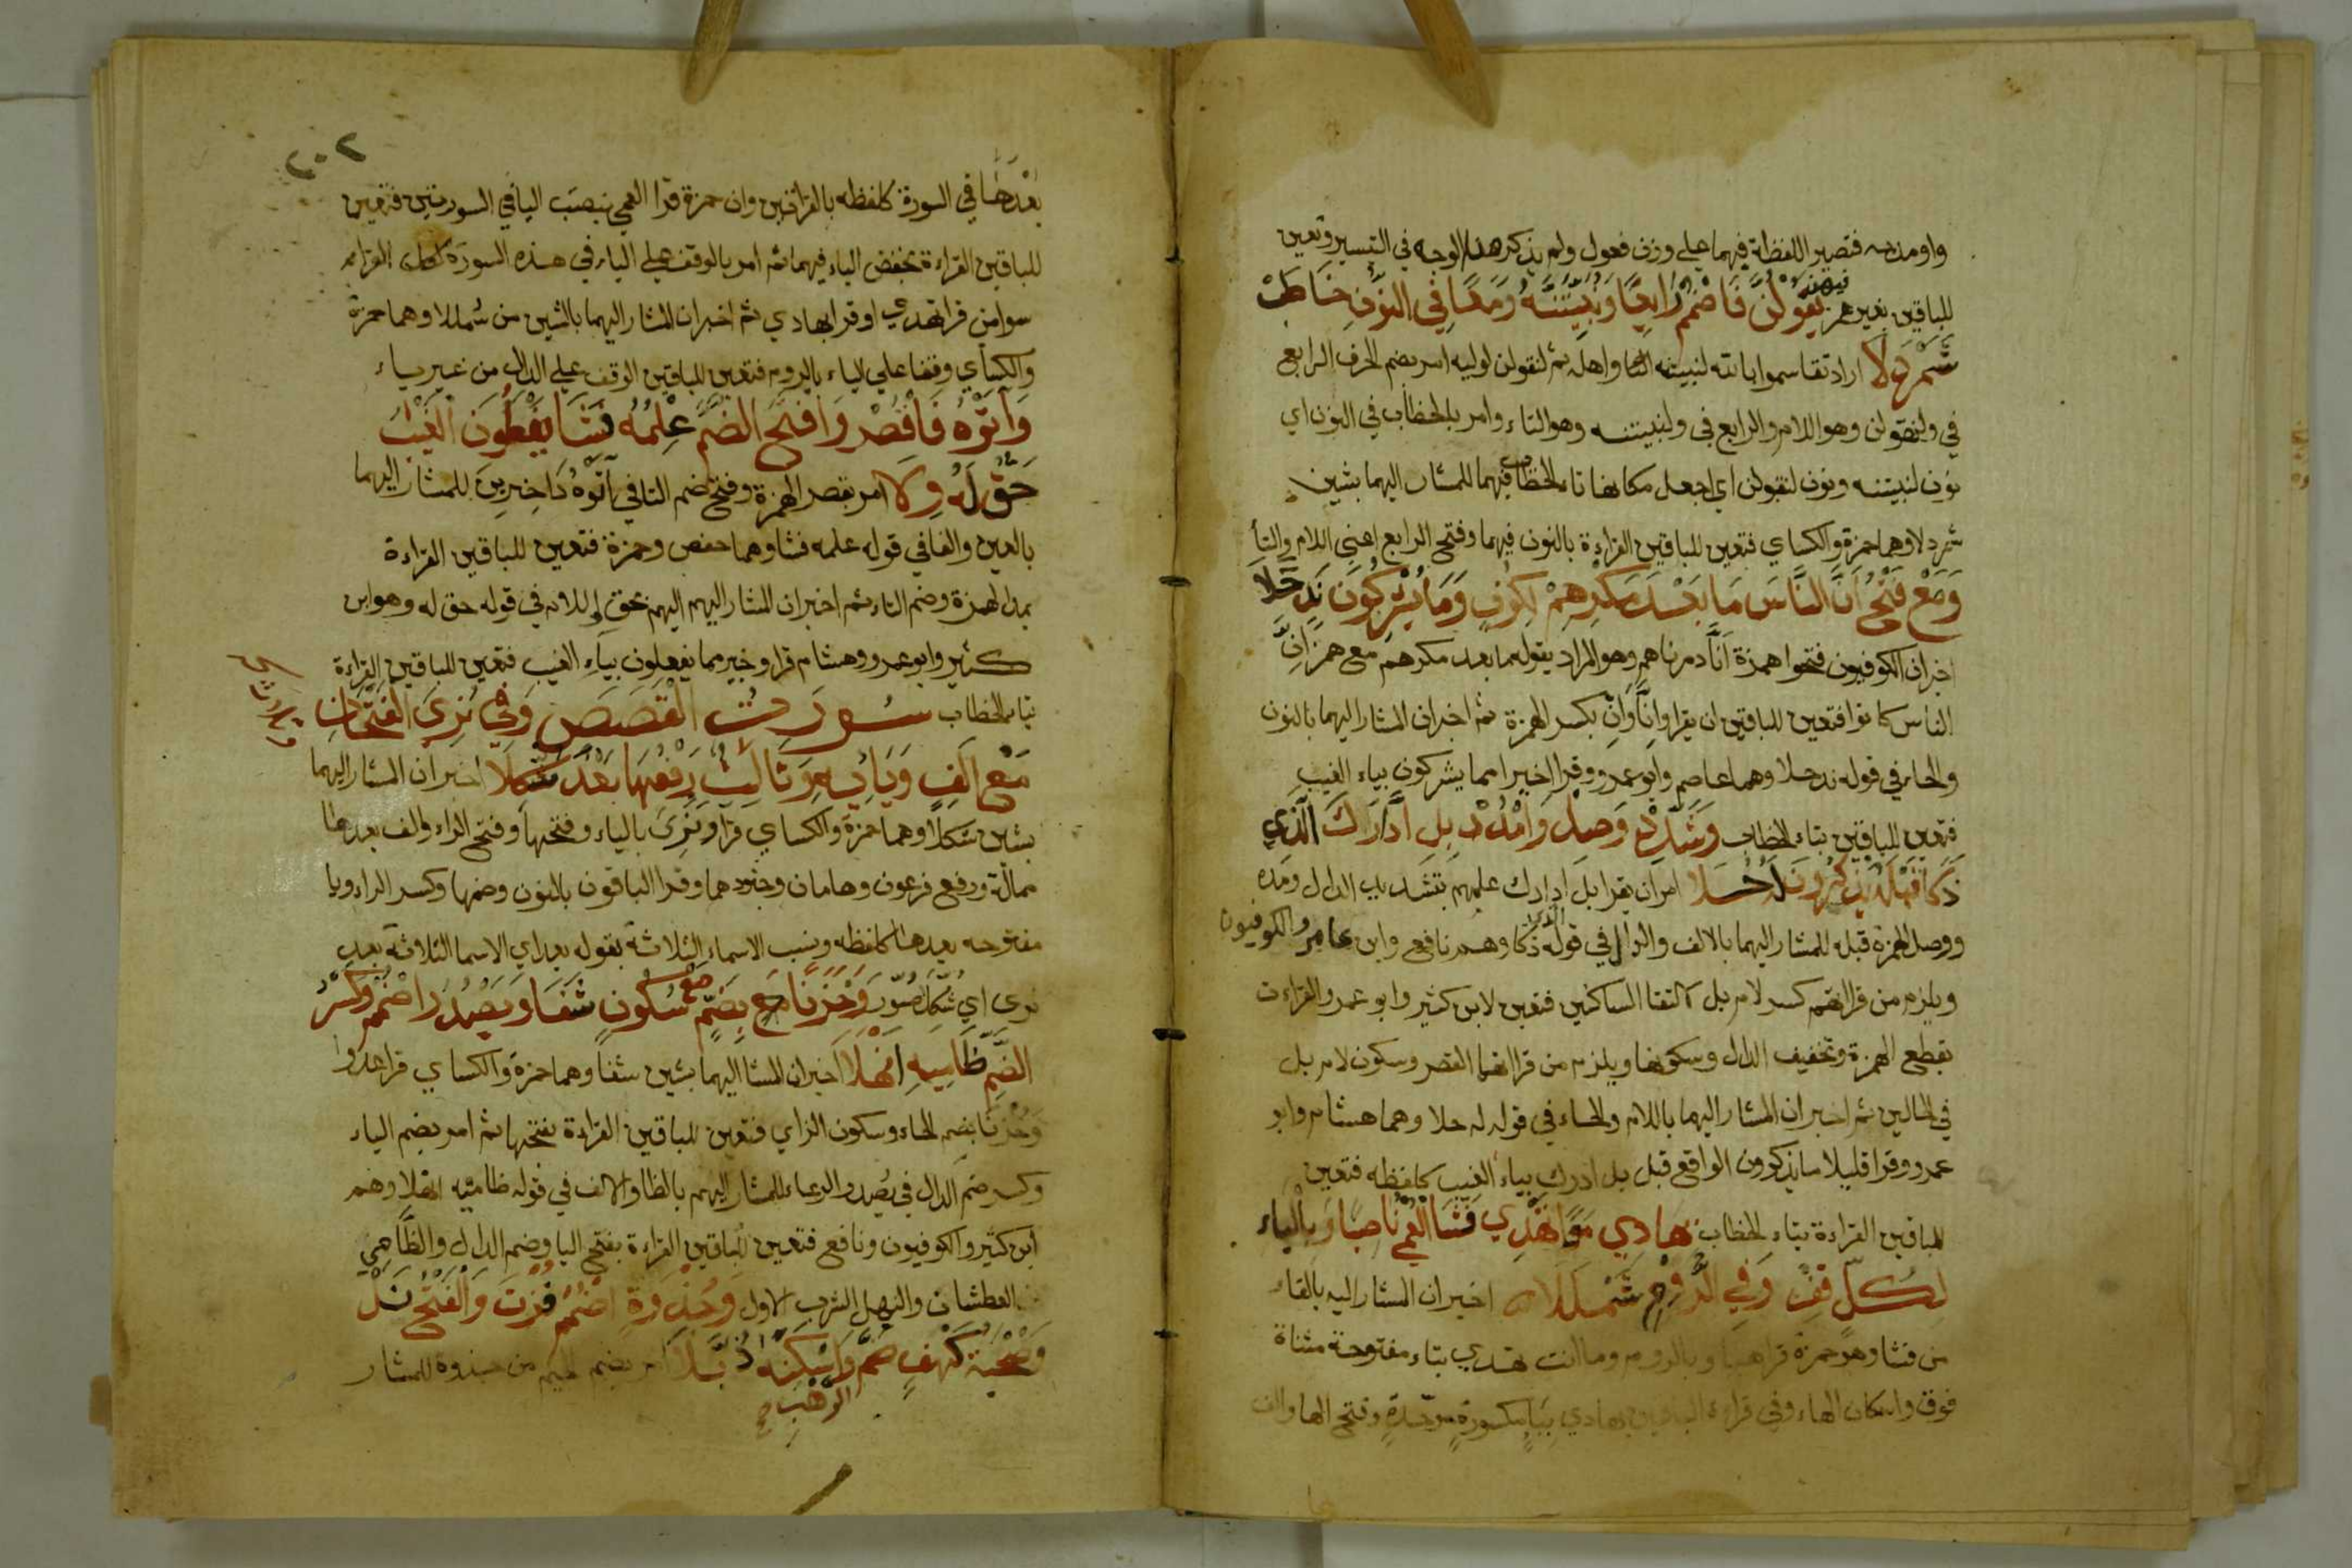 واو مديه فتصير اللفظة فيهما على وزن فعول ولم يذكر هذا الوجه في التيسير وتعين
للباقين بغير همز فيهن نَقُولَنَّ فَاضْمُمْ رَابِعًا وَنُبَيِّتَنَّهُ وَمَعًا فِي النُّونِ خَاطِبْ
شَمَرْدَلَا اراد تقاسموا بالله لنبيتنه واهله ثم لنقولن لوليه امر بضم الحرف الرابع
في ولنقولن وهو اللام والرابع في ولنبيتنه وهو التاء وامر بالخطاب في النون اي
نون لنبيتنه ونون لنقولن اي اجعل مكانها تا الخطاب فيهما للمشار اليهما بشين
شمردلا وهما حمزة والكساي فتعين للباقين القراءة بالنون فيهما وفتح الرابع اعني اللام والتا
وَمَعْ فَتْحِ أَنَّ النَّاسَ مَا بَعْدَ مَكْرِهِمْ لِكُوفٍ وَمَا يُشْرِكُونَ نَدٍ حَلَا
اخبر ان الكوفيون فتحوا همزة اَنَّا دمرناهم وهو المراد بقوله ما بعد مكرهم مع همز اَنَّ
الناس كانوا فتعين للباقين ان يقرا وانَّا وانّ بكسر الهمزة ثم اخبر ان المشار اليهما بالنون
والحاء في قوله ند حلا وهما عاصم وابو عمرو وقرا اخير اما يشركون بياء الغيب
فتعين للباقين بتاء الخطاب وَشَدِّدْ وَصِلْ وَامْدُدْ بَلِ ادَّارَكَ الَّذِي
ذَكَا قَبْلَهُ يَذَّكَّرُونَ لَهُ حُلَا امر ان يقرا بل ادارك علمهم بتشديد الدال ومده
ووصل الهمزة قبله للمشار اليهما بالالف والذال في قوله الذي ذكا وهم نافع وابن عامر والكوفيون
ويلزم من قراءتهم كسر لام بل لالتقا الساكنين فتعين لابن كثير وابو عمرو القراءت
بقطع الهمزة وتخفيف الدال وسكونها ويلزم من قراتهما القصر وسكون لام بل
في الحالين ثم اخبر ان المشار اليهما باللام والحاء في قوله له حلا وهما هشام وابو
عمرو وقرا قليلا ما يذكرون الواقع قبل بل ادرك بياء الغيب كلفظه فتعين
للباقين القراءة بتاء الخطاب بِهَادِي مَعًا تَهْدِي فَشَا الْعُمْيَ نَاصِبًا وَبِالْيَاء
لِكُلٍّ قِفْ وَفِي الرُّومِ شَمْلَلَا اخبر ان المشار اليه بالفاء
من فشا وهو حمزة قرا هنا وبالروم وما انت تهدي بتاء مفتوحة مثناة
فوق واسكان الهاء وفي قراءة الباقين بهادي بباء مكسورة موحدة وفتح الها والف
٢٠٢
بعدها في السورة كلفظه بالقراتين وان حمزة قرا العمي بنصب اليا في السورتين فتعين
للباقين القراءة بخفض الياء فيهما ثم امر بالوقف على الياء في هذه السورة لكل القراء
سوا من قرا تهدي او قرا بهادي ثم اخبر ان المشار اليهما بالشين من شمللا وهما حمزة
والكساي وقفا على الياء بالروم فتعين للباقين الوقف على الدال من غير ياء
وَآتُوهُ فَاقْصُرْ وَافْتَحِ الضَّمَّ عِلْمُهُ فَشَا يَفْعَلُونَ الْغَيْبُ
حَقٌّ لَهُ وِلَا امر بقصر الهمزة وفتح ضم التا في آتوه داخرين للمشار اليهما
بالعين والفا في قوله علمه فشا وهما حفص وحمزة فتعين للباقين القراءة
بمد الهمزة وضم التاء ثم اخبر ان المشار اليهم اليهم بحق واللام في قوله حق له وهو ابن
كثير وابو عمرو وهشام قراو خبير بما يفعلون بياء الغيب فتعين للباقين القراءة
بتا الخطاب سورت القصص وَفِي نُرِيَ الْفَتْحَانِ
مَعْ أَلِفٍ وَيَائِهِ وَثَلَاثٌ رَفْعُهَا بَعْدُ شُكِّلَا اخبر ان المشار اليهما
بشين شكلا وهما حمزة والكساي قرا ونرى بالياء وفتحها وفتح الراء والف بعدها
ممالة ورفع فرعون وهامان وجنودهما وقرا الباقون بالنون وضمها وكسر الراء ويا
مفتوحه بعدها كلفظه ونصب الاسماء الثلاثة بقوله بعد اي الاسما الثلاثة بعد
نرى اي شكل صور وَحُزْنًا بِضَمٍّ مَعْ سُكُونٍ شَفَا وَيَصْدُرَ اضْمُمْ وَكَسْرُ
الضَّمِّ ظَامِيهِ انْهَلَا اخبر ان المشا اليهما بشين شفا وهما حمزة والكساي قرا عدوا
وحزنا بضم الحاء وسكون الزاي فتعين للباقين القراءة بفتحها ثم امر بضم الياء
وكسر ضم الدال في يصدر الرعاء للمشار اليهم بالظا والالف في قوله ظاميه انهلا وهم
ابن كثير والكوفيون ونافع فتعين للباقين القراءة بفتح اليا وضم الدال والظامي
العطشان والنهل الشرب الاول وَجِذْوَةٍ اضْمُمْ فُزْتَ وَالْفَتْحَ نَلْ
وَصُحْبَةُ كَهْفٍ ضَمَّ وَاسْكِنْهُ ذُبَّلَا امر بضم الجيم من جذوة للمشار
الرهب